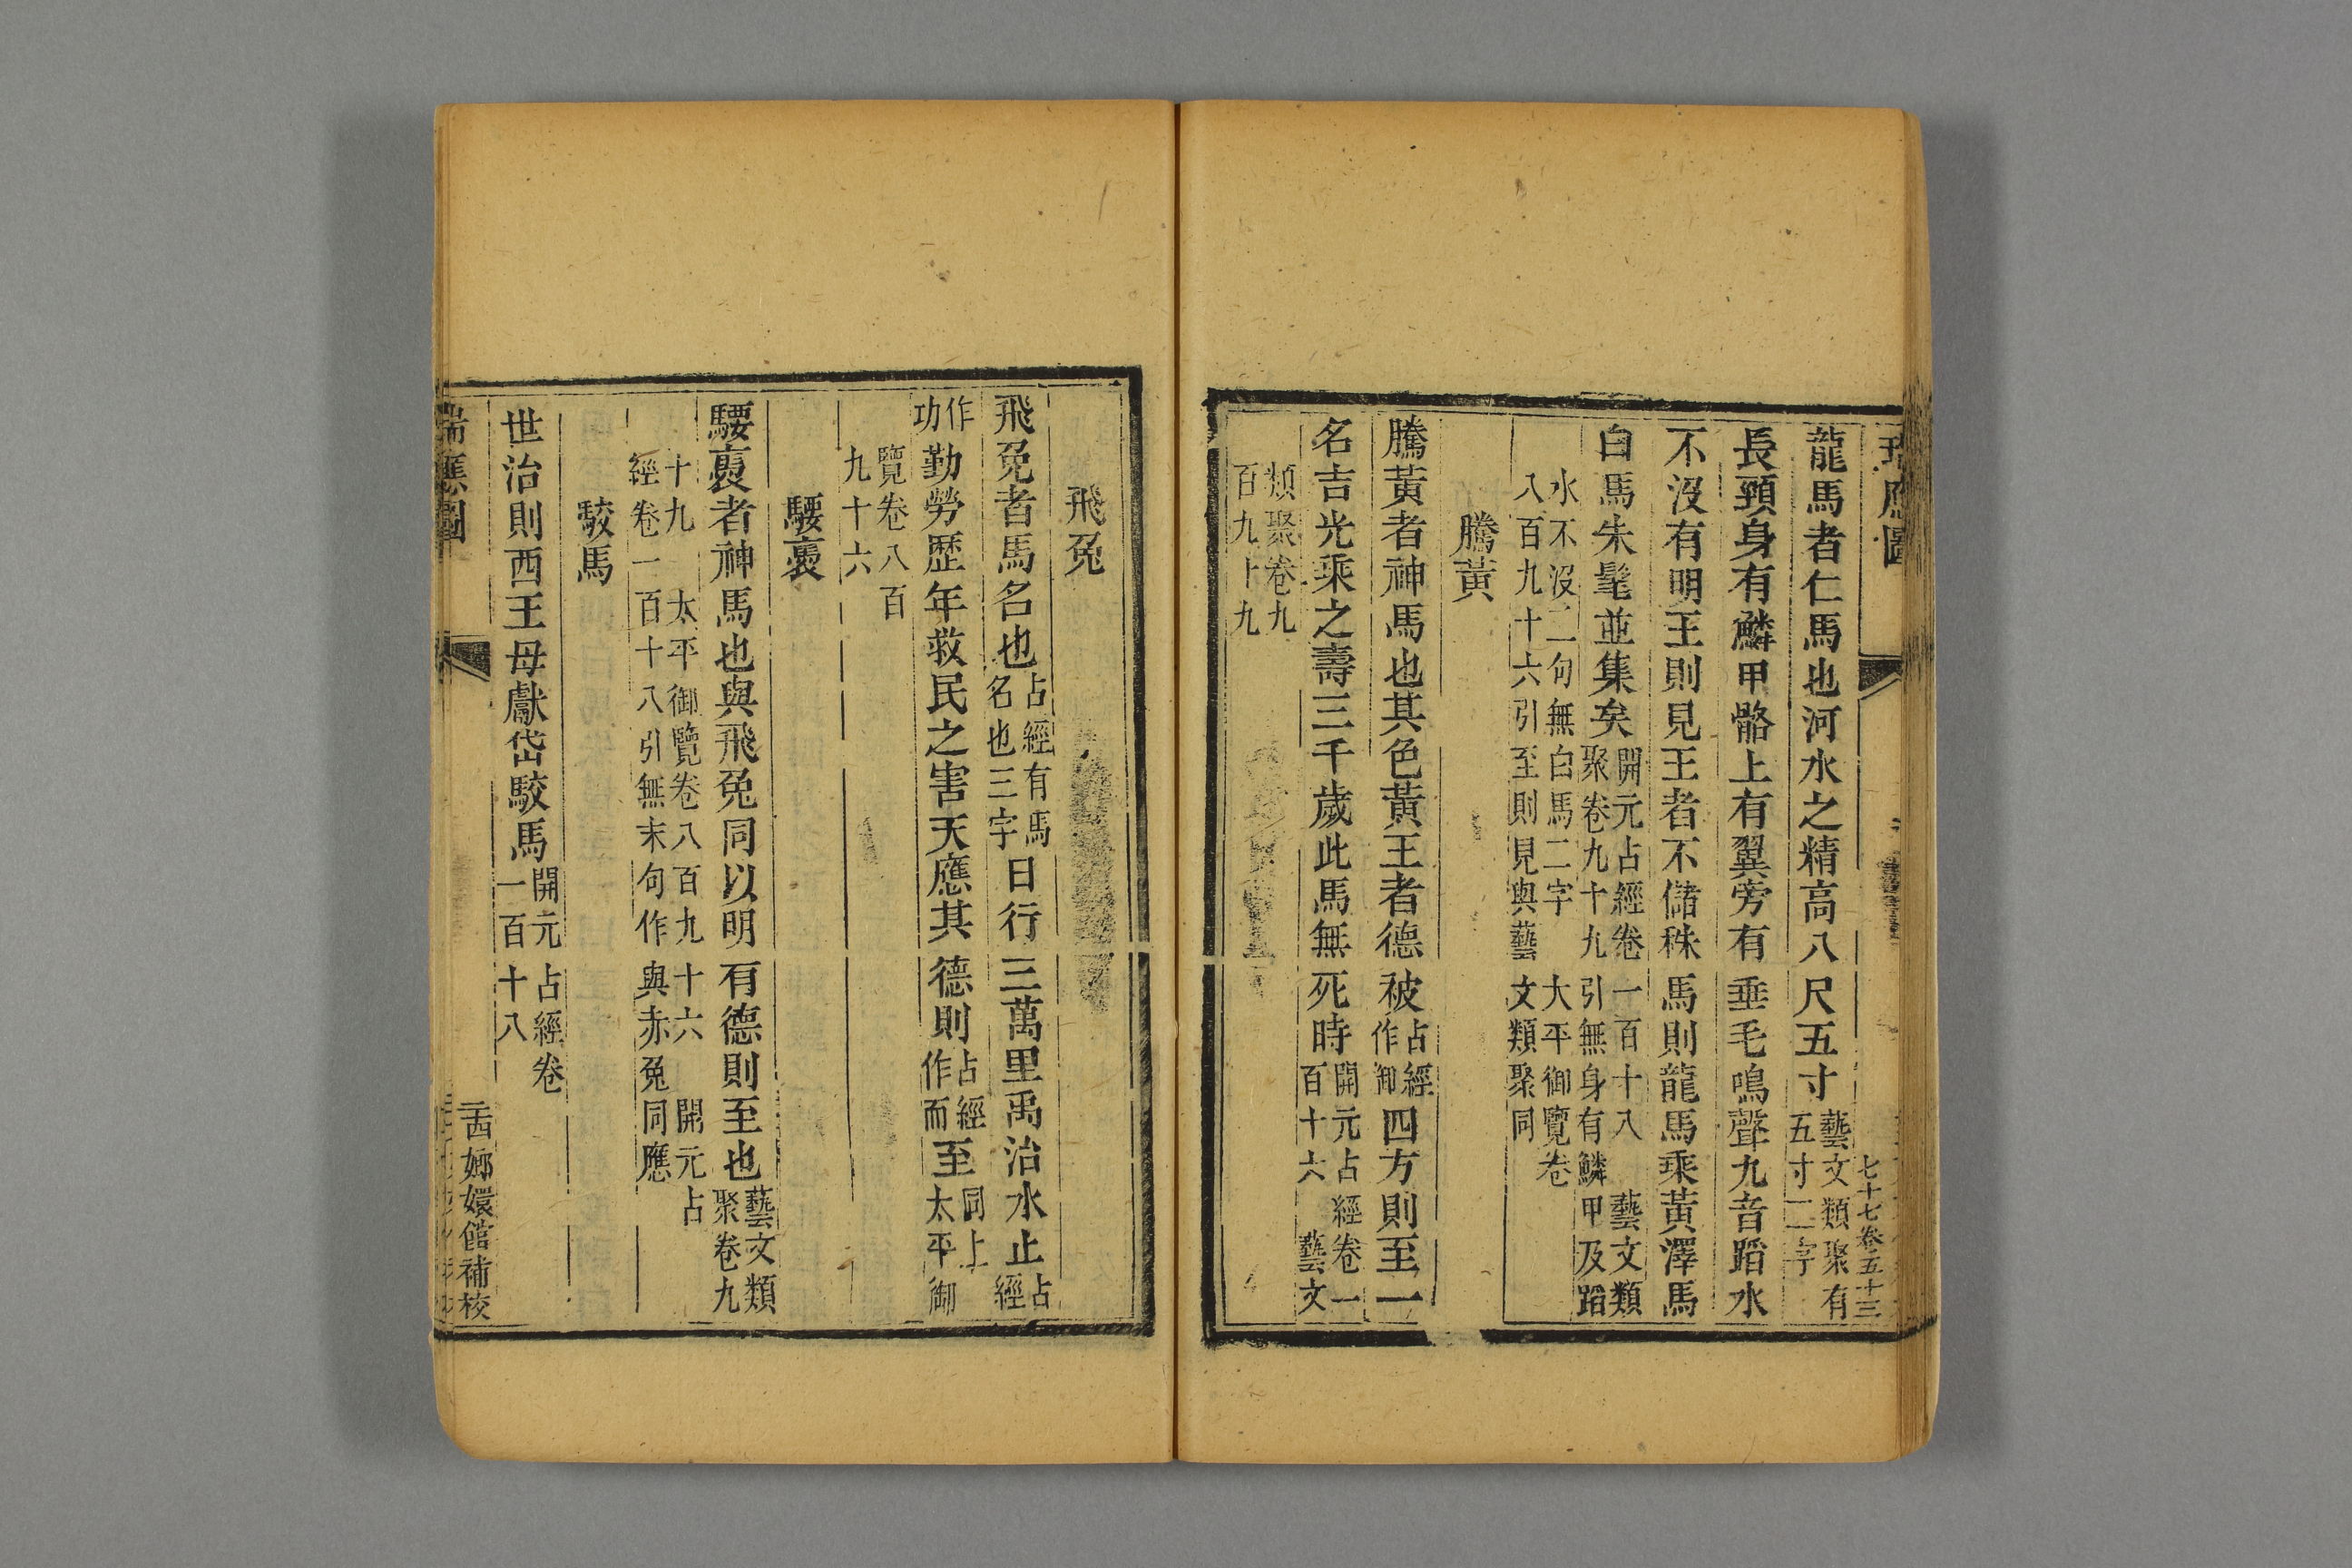 瑞應圖
七十七卷五十三
龍馬者仁馬也河水之精高八尺五寸藝文類聚有
五寸二字
長頸身有鱗甲骼上有翼旁有垂毛鳴聲九音蹈水
不沒有明王則見王者不儲秣馬則龍馬乘黃澤馬
白馬朱髦並集矣開元占經卷一百十八 藝文類
聚卷九十九引無身有鱗甲及蹈
水不沒二句無白馬二字 大平御覽卷
八百九十六引至則見與藝文類聚同
騰黃
騰黃者神馬也其色黃王者德被占經
作御四方則至一
名吉光乘之壽三千歲此馬無死時開元占經卷一
百十六 藝文
類聚卷九
百九十九
飛兔
飛兔者馬名也占經有馬
名也三字日行三萬里禹治水止占
經
作
功勤勞歷年救民之害天應其德則占經
作而至同上
太平御
覽卷八百
九十六
騕褭
騕褭者神馬也與飛兔同以明有德則至也藝文類
聚卷九
十九 太平御覽卷八百九十六 開元占
經卷一百十八引無末句作與赤兔同應
駮馬
世治則西王母獻岱駮馬開元占經卷
一百十八
瑞應圖
嫏嬛館補校